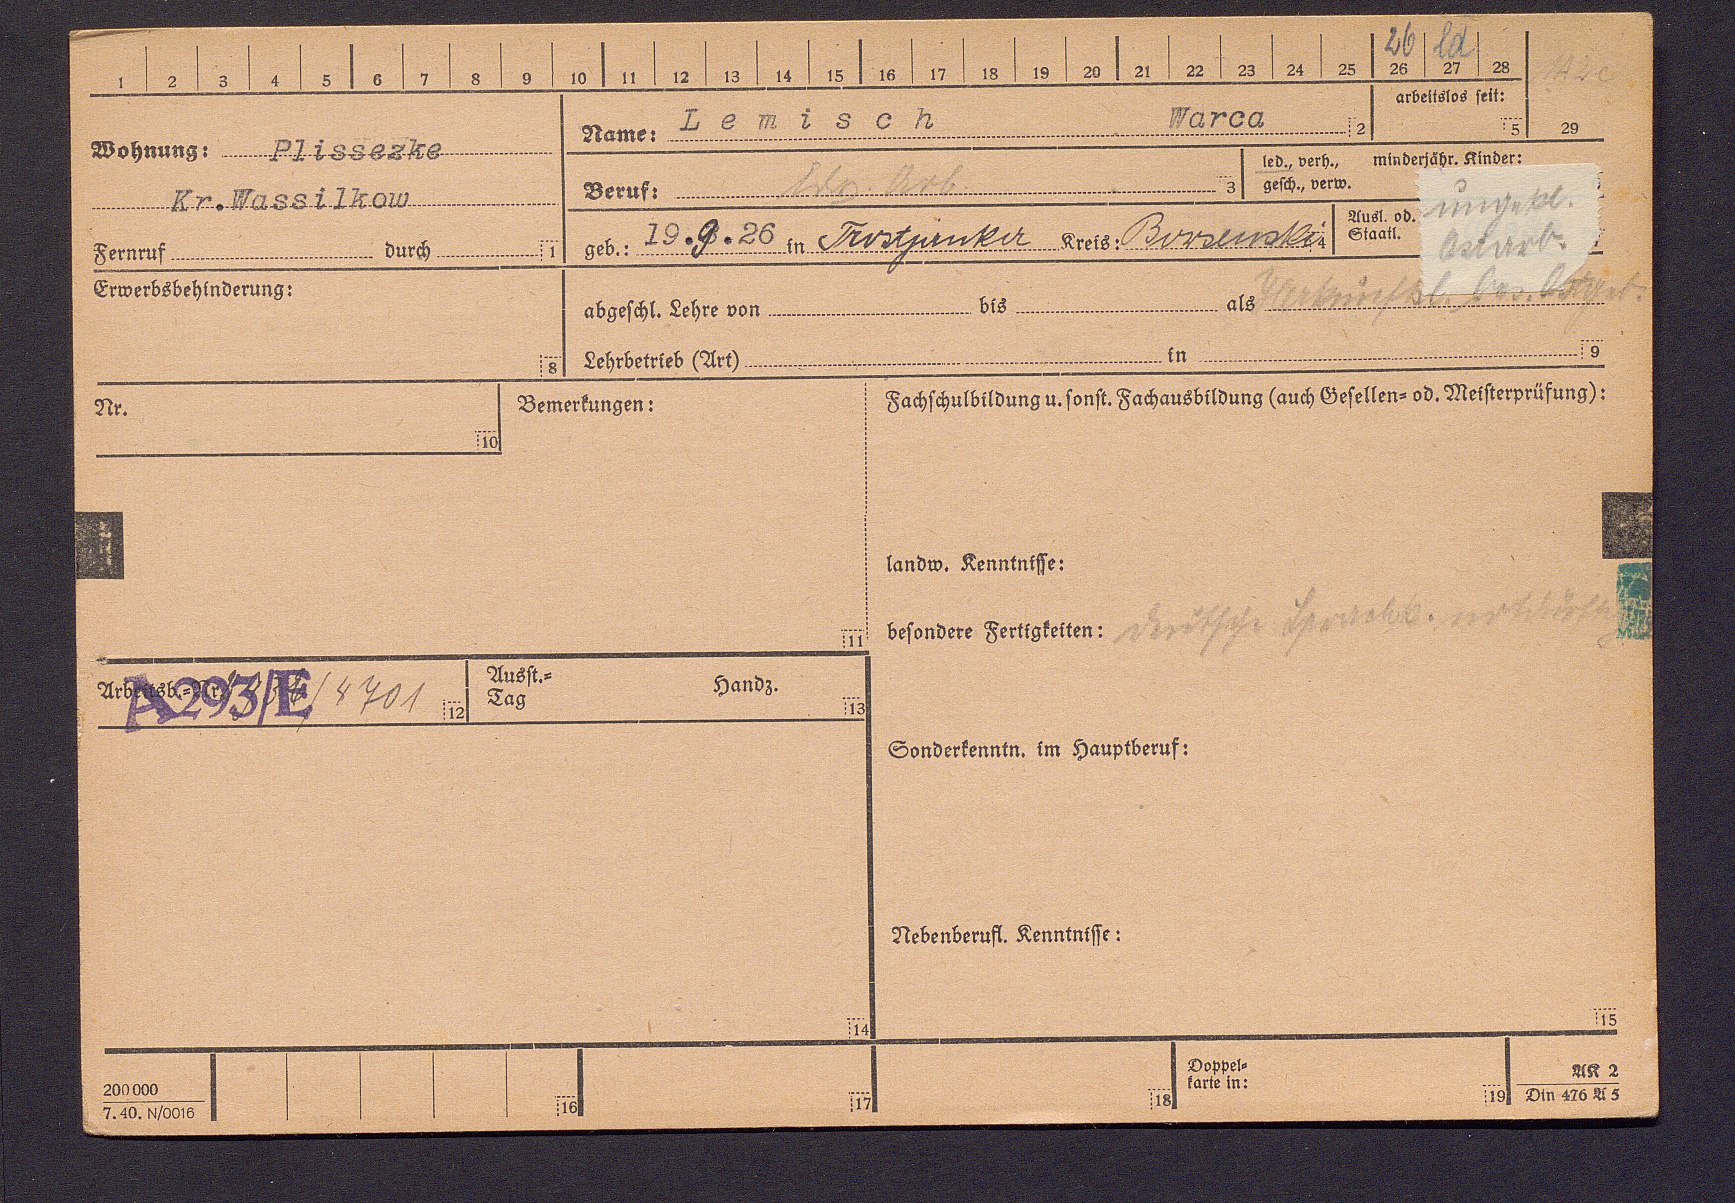 1 2 3 4 5 6 7 8 9 10 11 12 13 14 15 16 17 18 19 20 21 22 23 24 25 26 27 28
26 ld
arbeitslos seit:
5 29
Wohnung: Plissezke
Kr.Wassilkow
Fernruf durch 1
Name: Lemisch Warca 2
Beruf: Ldw. Arb. 3
led., verh., gesch., verw.
minderjähr. Kinder:
geb.: 19.9.26 in Trostjanker Kreis: Borsenski 4
Ausl. od. Staatl.
ungekl.
Ostarb.
Erwerbsbehinderung:
8
abgeschl. Lehre von bis als
Lehrbetrieb (Art) in 9
Nr.
10
Bemerkungen:
11
Fachschulbildung u. sonst. Fachausbildung (auch Gesellen- od. Meisterprüfung):
landw. Kenntnisse:
besondere Fertigkeiten: deutsche Sprachk.
Arbeitsb.-Nr. /4701 12
A293/E
Ausst.-
Tag
Handz.
13
Sonderkenntn. im Hauptberuf:
Nebenberufl. Kenntnisse:
14
15
200 000
7. 40. N/0016
16
17
18
Doppel-
karte in:
19
AK 2
Din 476 A 5